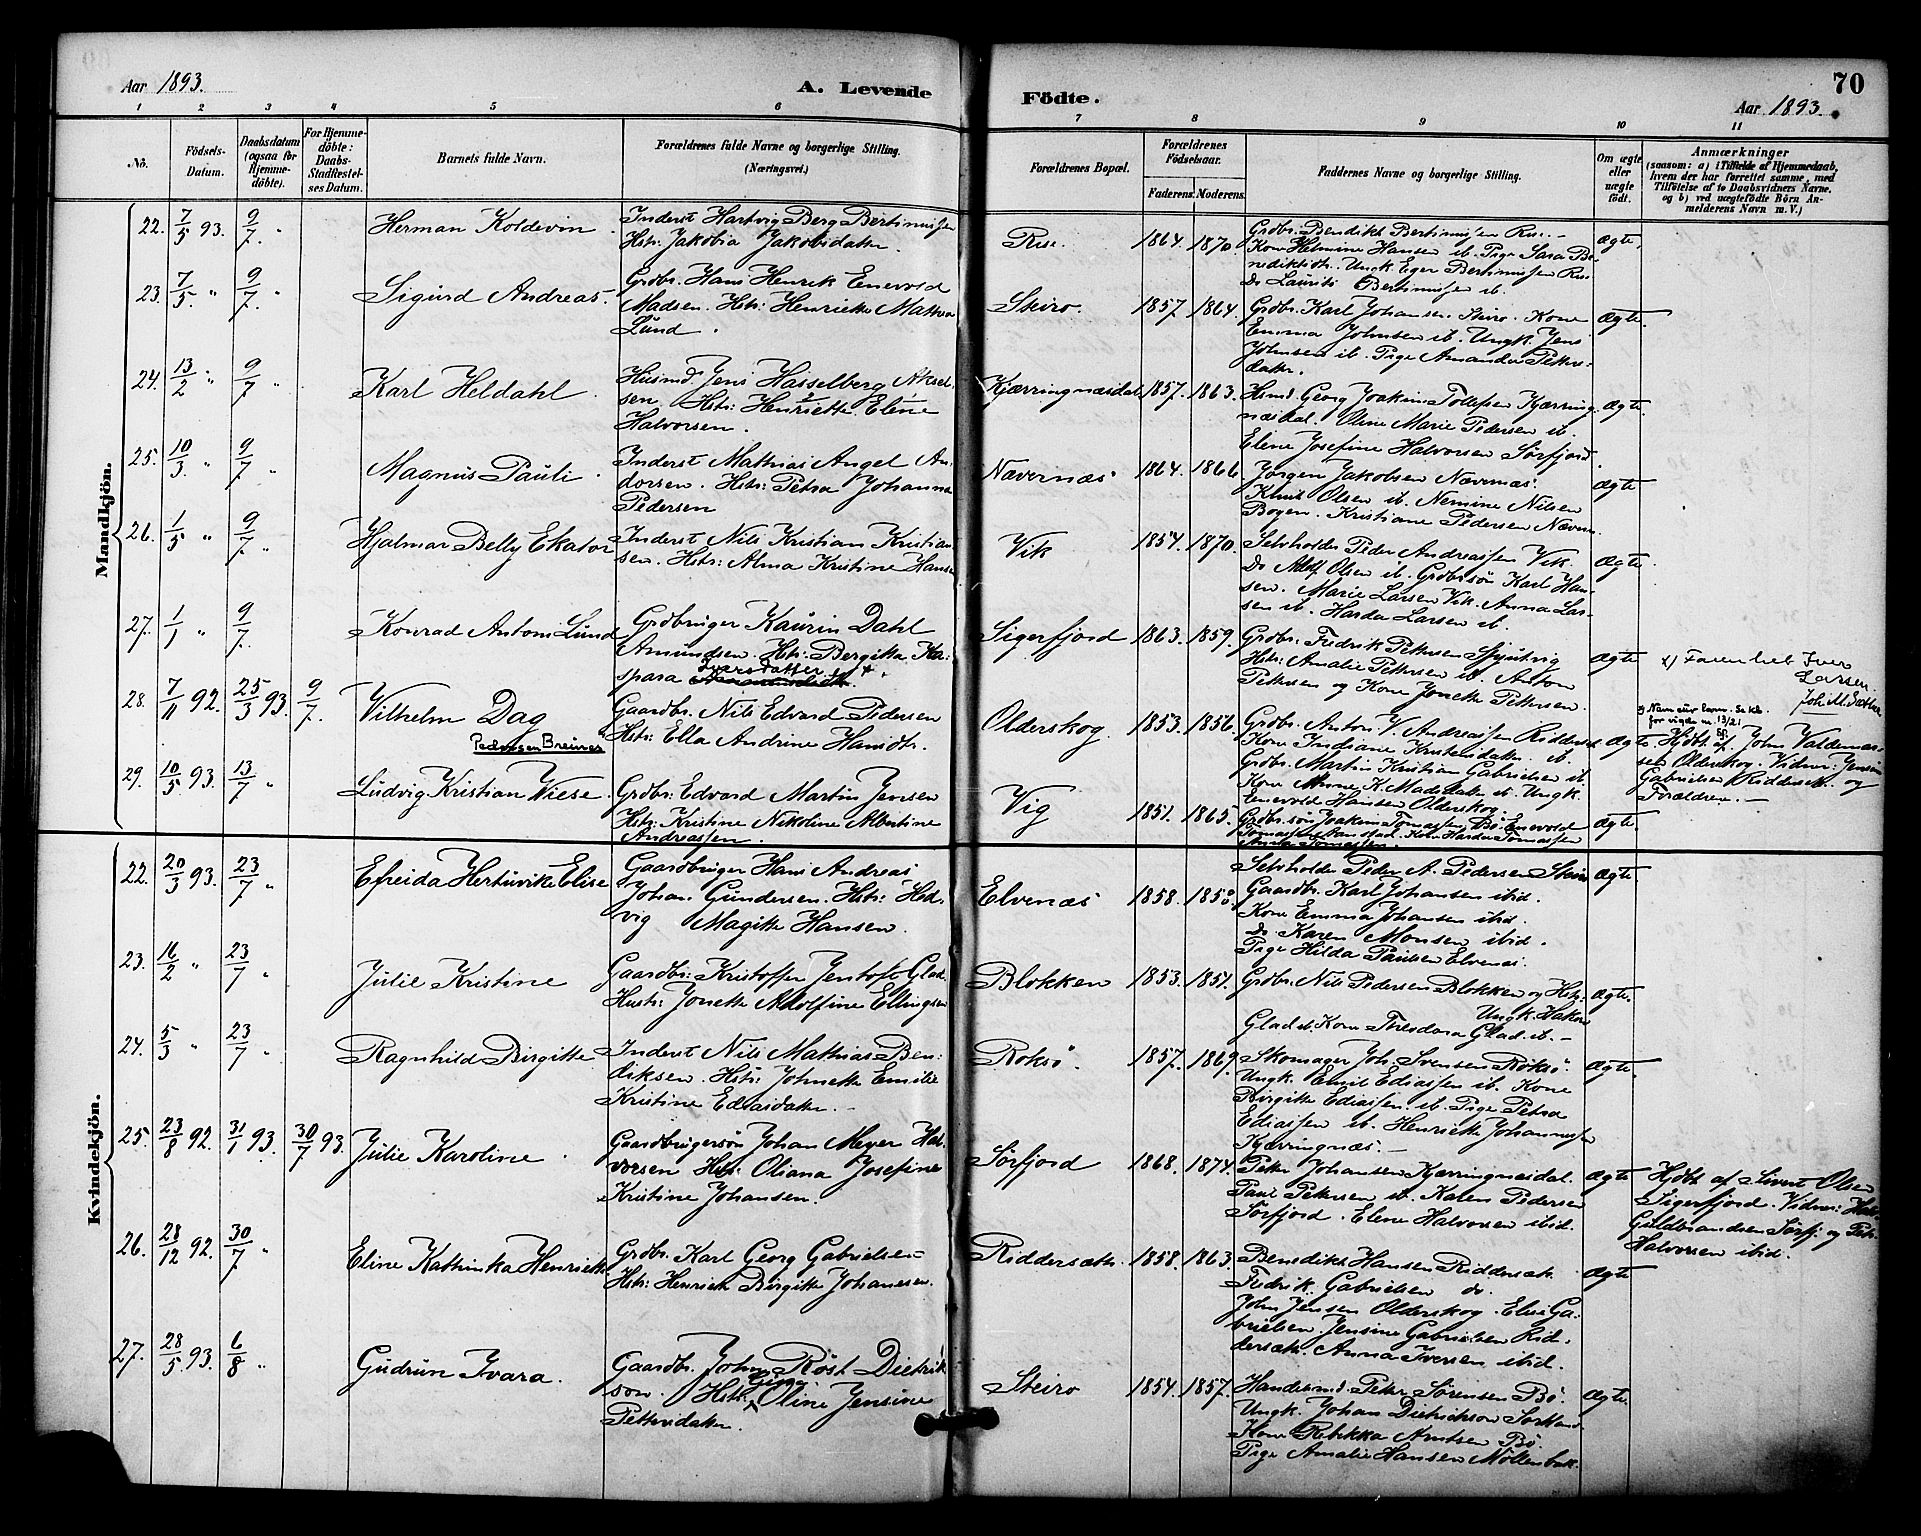 Aar 1893.
A. Levende
Födte.
70
Aar 1893.
1 2 3 4 5 6 7 8 9 10 11
No.
Födsels-
Datum.
Daabsdatum
(ogsaa for
Hjemme-
döbte).
For Hjemme-
döbte:
Daabs-
Stadfæstel-
ses Datum.
Barnets fulde Navn.
Forældrenes fulde Navne og borgerlige Stilling.
(Næringsvei.)
Forældrenes Bopæl.
Forældrenes
Födselsaar.
Faderens. Moderens.
Faddernes Navne og borgerlige Stilling.
Om ægte
eller
uægte
födt.
Anmærkninger
(saasom: a) i Tilfælde af Hjemmedaab,
hvem der har forrettet samme, med
Tilföielse af to Daabsvidners Navne,
og b) ved uægtefödte Börn An-
melderens Navn m. V.)
Mandkjön.
22. 7/5 93. 9/7. "
Herman Koldevin
Inderst Hartvig Berg Bertinussen
Hstr: Jakobia Jakobsdatter.
Rise.
1864. 1870.
Grdbr. Bendikt Bertinussen Rise.
Kone Helmine Hansen ib. Pige Sara Be-
nediktdtr. Ungk Eger Bertinussen Rise
Do Laurits Bertinussen ib.
Ægte.
23. 7/5 " 9/7. "
Sigurd Andreas.
Grdbr. Hans Henrik Enevold
Madsen. Hstr: Henriette Mathea
Lund.
Steiro.
1857. 1864.
Grdbr. Karl Johansen. Steiro. Kone
Emma Johnsen ib. Ungk. Jens
Johnsen ib. Pige Amanda Petters-
datter.
Ægte.
24. 13/2 " 9/7 "
Karl Heldahl.
Husmd. Jens Hasselberg Aksel-
sen Hstr: Henriette Eline
Halvorsen.
Kjærringnæsdal
1857. 1863.
Hsmd. Georg Joakim Tollefsen Kjærring-
næsdal. Oline Marie Pedersen ib.
Elene Josefine Halvorsen Sørfjord.
Ægte.
25. 10/3 " 9/7 "
Magnus Pauli.
Inderst Mathias Angel An-
dorsen. Hstr: Petra Johanna
Pedersen
Nævernæs
1864. 1866.
Jørgen Jakobsen Nævernæs.
Knut Olsen ib. Nemine Nilsen
Bogen. Kristiane Pedersen Nævern.
Ægte
26. 1/5 " 9/7 "
Hjalmar Belly Ekator
Inderst Nils Kristian Kristian-
sen. Hstr: Alma Kristine Hansen
Vik
1854. 1870.
Selvholder Peder Andreassen Vik.
Do Adolf Olsen ib. Grdbrsön Karl Han-
sen. Marie Larsen Vik. Anna Lar-
sen ib. Harda Larsen ib.
Ægte.
27. 1/1 " 9/7.
Konrad Antoni Lund
Grdbruger Kaurin Dahl
Amundsen. Hstr: Bergitta Ka-
spara Ivarsdatter
Sigerfjord
1863. 1859.
Grdbr. Fredrik Pettersen
Hstr: Amalie Pettersen ib. Anton
Pettersen og Kone Jonette Pettersen.
Ægte
Faren het Iver
Larsen.
28. 7/11 92. 25/3 93. 9/7.
Vilhelm Dag
Pedersen Breines
Gaardbr. Nils Edvard Pedersen
Hstr: Ella Andrine Hansdtr.
Olderskog.
1853. 1856.
Grdbr. Anton V. Andreassen Riddersæt
Kone Indiane Kristensdatter. ib.
Grdbr. Martin Kristian Gabrielsen ib
Kone Anne K. Madsdatter ib. Ungk.
Enevold Hansen Olderskog.
Ægte.
Hjdbt. af John Valdemar-
sen Olderskog. Vidner: Jensine
Gabrielsen Riddersæt og
Forældrene.
29. 10/5 93. 13/7 "
Ludvig Kristian Wiese.
Grdbr: Edvard Martin Jensen
Hstr: Kristine Nikoline Albertine
Andreassen.
Vig
1851. 1865.
Grdbr.sön Joakim Tomassen Bö. Enevold
Anna Tomassen.
Ægte.
Kvindekjön.
22. 20/3 93. 23/7 "
Efreida Hertuvike Elise
Gaardbruger Hans Andreas
Johan Gundersen. Hstr: Hed-
vig Magitte Hansen.
Elvenæs
1858.
Selvholder Peder A. Pedersen Steiro
Gaardbr. Karl Johansen ibid.
Kone Emma Johansen ibid.
Do. Karen Monsen ibid.
Pige Hilda Paulsen Elvenæs.
Ægte.
23. 16/2 " 23/7 "
Julie Kristine
Gaardbr: Kristoffer Jentoft Glad.
Hustr: Jonette Adolfine Ellingsen
Blokken
1853. 1851.
Grdbr. Nils Pedersen Blokken og Hstr.
Ungk. Hakon
Glad ib. Kone Theodora Glad ib.
Ægte.
24. 5/3 " 23/7 "
Ragnhild Birgitte.
Inderst Nils Mathias Ben-
diksen. Hstr: Johnette Emilie
Kristine Ediasdatter.
Roksö.
1857. 1869.
Skomager Joh. Svensen Roksö.
Ungk. Emil Ediassen ib. Kone
Birgitte Ediassen. ib. Pige Petra
Ediassen ib. Henriette Johannessen
Kjærringnæs.
Ægte.
25. 23/8 92. 31/1 93. 30/7 93.
Julie Karoline.
Gaardbrugersön Johan Meyer Hal-
vorsen Hstr: Oliana Josefine
Kristine Johansen.
Sørfjord
1868. 1874.
Peter Johansen Kjærringnæsdal.
Paul Pettersen ib. Kalen Pedersen
Sørfjord. Elene Halvorsen ibid.
Ægte
Hjdbt af Sivert Olsen
Sigerfjord. Vidner:
Guldbrandsen Sørfj. og Petr.
Halvorsen ibid.
26. 28/12 92. 30/7 "
Eline Kathinka Henriette
Grdbr. Karl Georg Gabrielsen
Hstr: Henriette Birgitte Johansen.
Riddersæter.
1858. 1863.
Benedikt Hansen Riddersæt.
Fredrik Gabrielsen do.
John Jensen Olderskog. Elise Ga-
brielsen Jensine Gabrielsen Rid-
dersæter. Anna Iversen ibid.
Ægte
27. 28/5 93. 6/8 "
Gudrun Ivara.
Gaardbr. John Röst Dietrik-
son. Hstr: Gina Oline Jensine
Pettersdatter.
Steiro
1854. 1857.
Handelsmd. Peter Sørensen Bö.
Ungk. Johan Dietrichson Sortland
Kone Rebekka Arntsen Bö.
Pige Amalie Hansen Möllenbak.
Ægte.